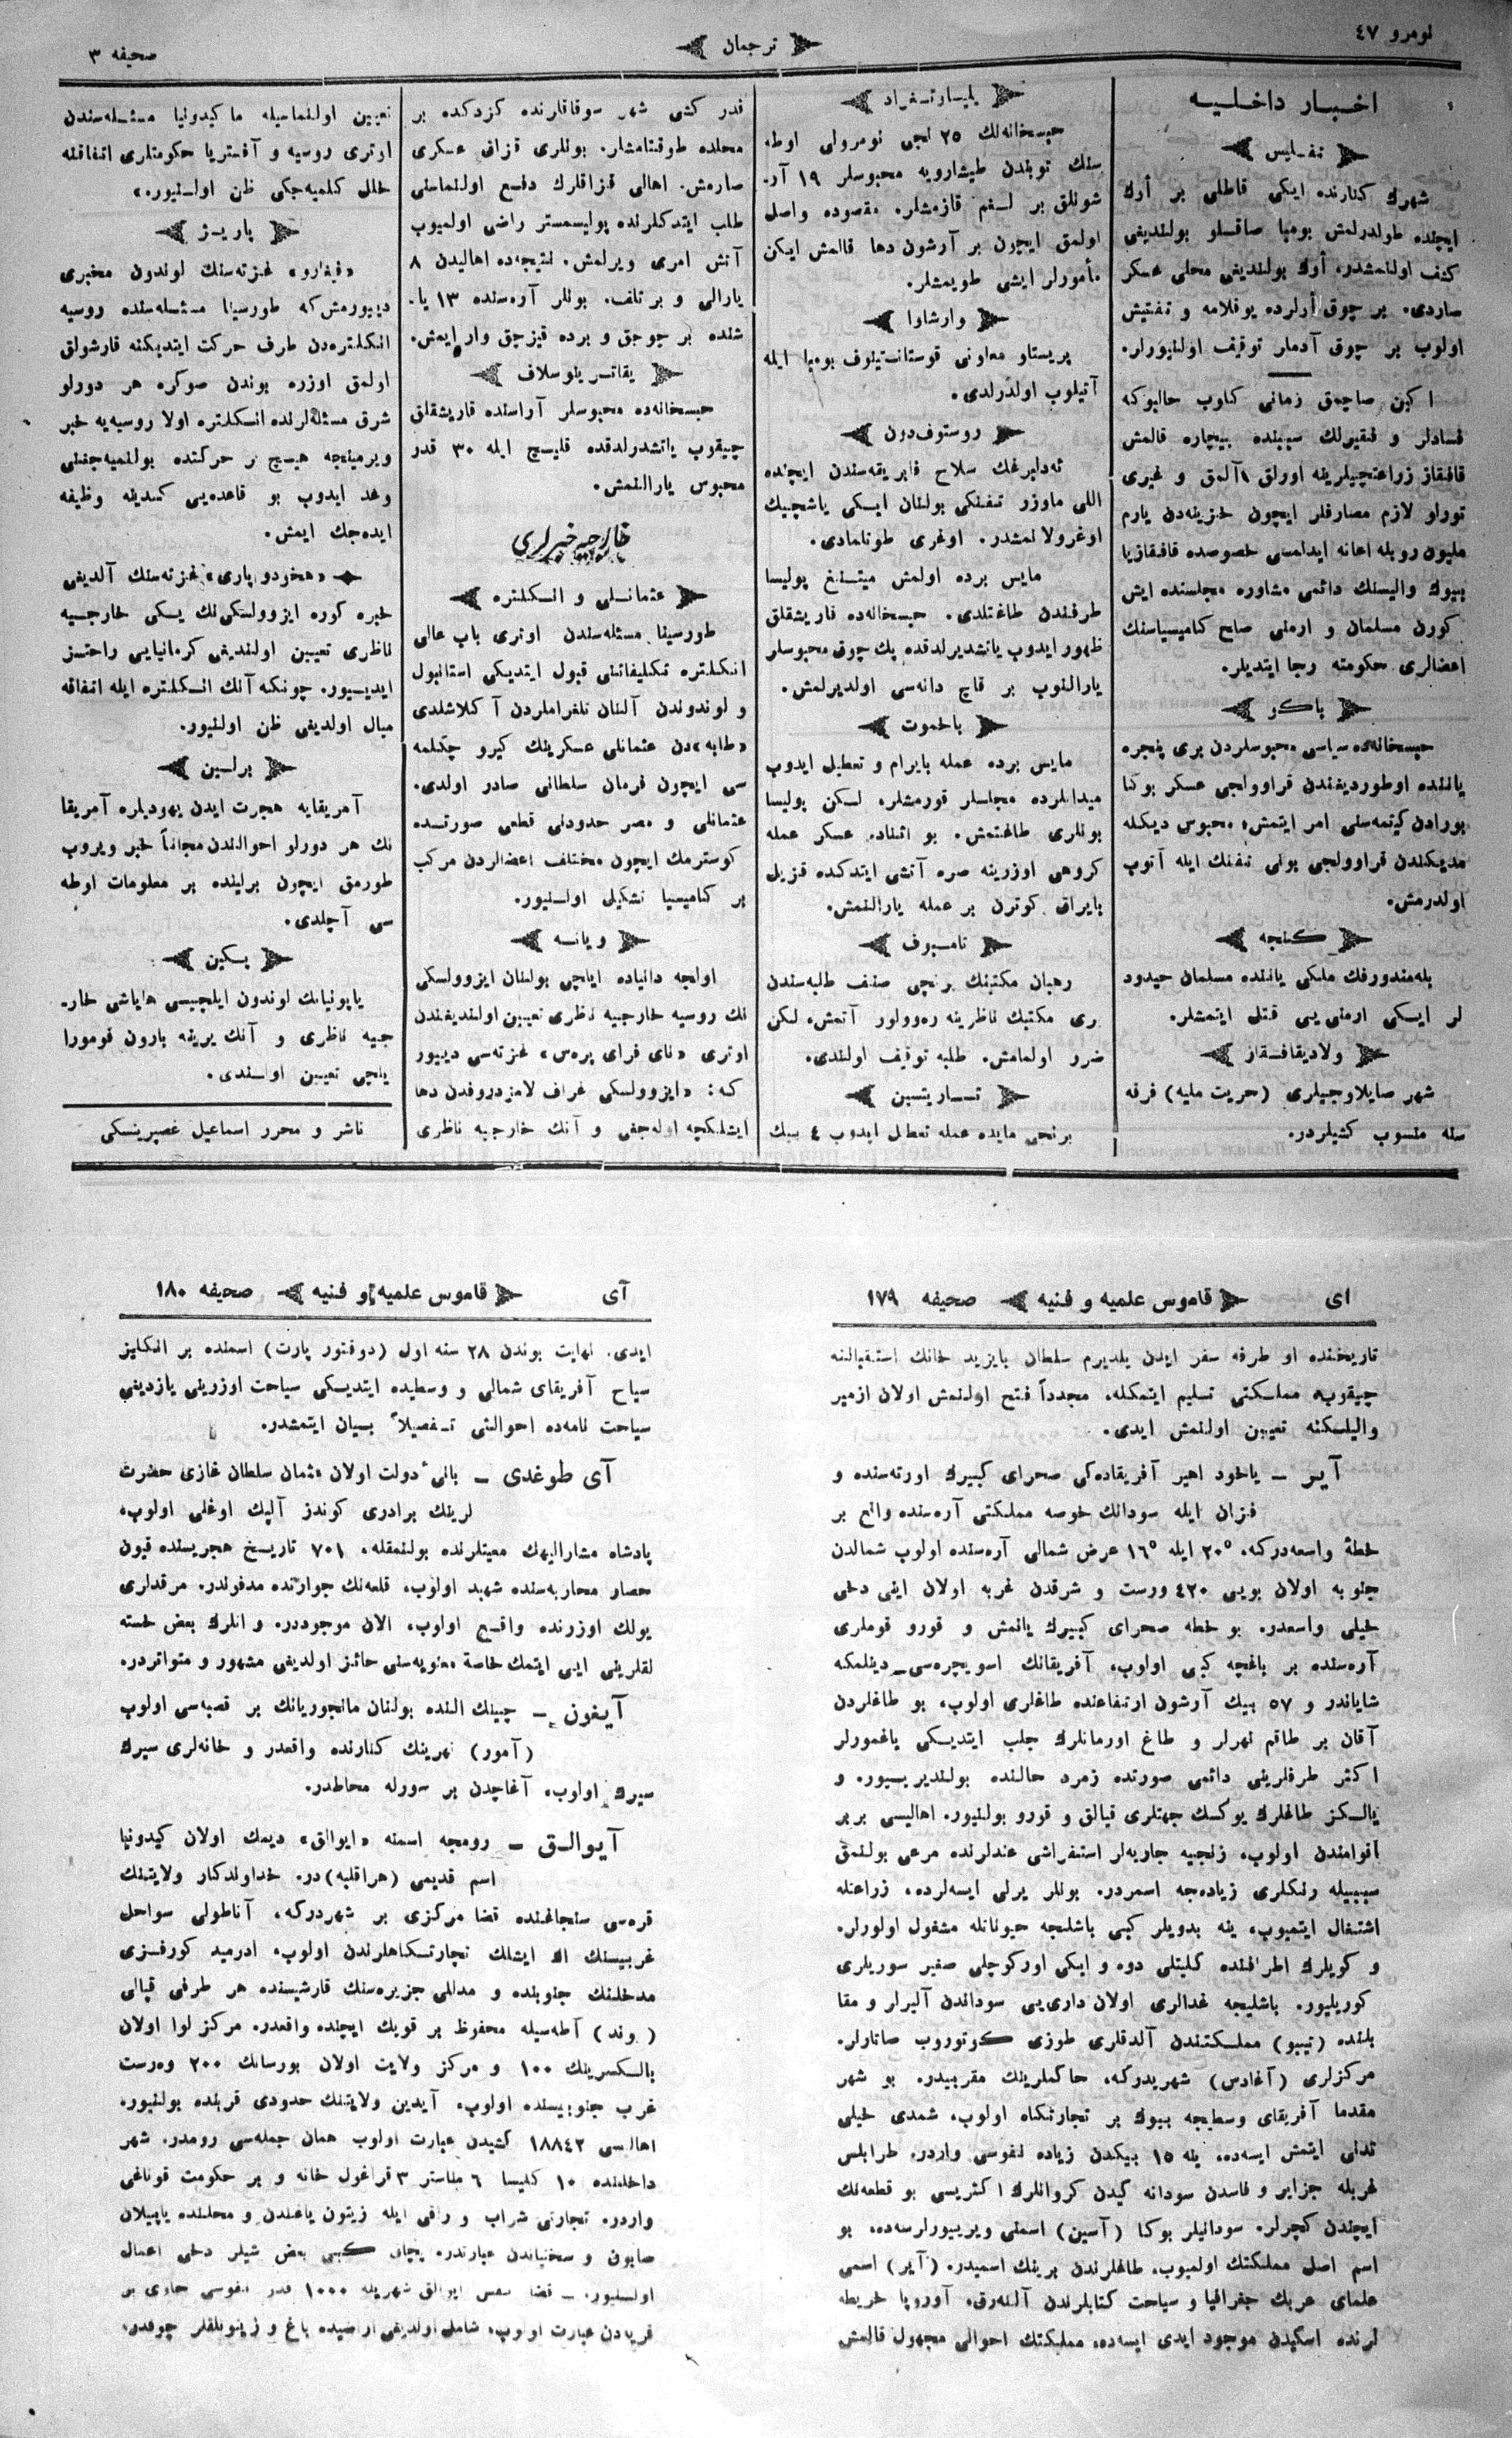 نومرو ٤٧
ترجمان
صحیفه ٣
اخبار داخلیه
تفلیس
شهرك كنارنده ایكی قاطلی بر أوك
ایچنده طولدرلمش بومبا صاقلو بولندیغی
كشف اولنمشدر. أوك بولندیغی محلی عسكر
صاردی. بر چوق أولرده یوقلامه و تفتیش
اولوب بر چوق آدملر توقیف اولنیورلر.
اكین صاچمق زمانی كلوب حالبوكه
فسادلر و فقیرلك سببنده بیچاره قالمش
قافقاز زراعتچیلرینه اورلق آلمق و غیری
تورلو لازم مصارفلر ایچون خزینه‌دن یارم
ملیون روبله اعانه ایدلمسی خصوصده قافقازیا
بیوك والیسنك دائمی مشاوره مجلسنده ایش
كورن مسلمان و ارمنی صلح كامیسیاسنك
اعضالری حكومته رجا ایتدیلر.
باكو
حبسخانه‌ده سیاسی محبوسلردن بری پنجره
یاننده اوطوردیغندن قراوولجی عسكر بوكا
بورادن كیتمه‌سنی امر ایتمش؛ محبوس دیكله
مدیكندن قراوولجی بونی تفنك ایله آتوب
اولدرمش.
كنجه
بله‌مندورفك ملكی یاننده مسلمان حیدود
لر ایكی ارمنی‌یی قتل ایتمشلر.
ولادیقافقاز
شهر صایلاوجیلری (حریت ملیه) فرقه
سنه منسوب كشیلردر.
یلیساوتغراد
حبسخانه‌نك ٢٥ نجی نومرولی اوطه
سنك توبندن طیشارویه محبوسلر ١٩ آر-
شونلق بر لغم قازمشلر. مقصوده واصل
اولمق ایچون بر آرشون دها قالمش ایكن
مأمورلر ایشی طویمشلر.
وارشاوا
پریستاو معاونی قوستانتینوف بومبا ایله
آتیلوب اولدرلدی.
روستوف‌دون
ئه‌دلبرغك سلاح فابریقه‌سندن ایچنده
اللی ماوزر تفنكی بولنان ایكی یاشچیك
اوغرولانمشدر. اوغری طوتلمادی.
مایس برده اولمش میتنغ پولیسا
طرفندن طاغتلدی. حبسخانه‌ده قاریشقلق
ظهور ایدوب یاتشدیرلدقده پك چوق محبوسلر
یارالنوب بر قاچ دانه‌سی اولدیرلمش.
باخموت
مایس برده عمله بایرام و تعطیل ایدوب
میدانلرده مجلسلر قورمشلر. لكن پولیسا
بونلری طاغتمش. بو اثناده عسكر عمله
كروهی اوزرینه صره آتشی ایتدكده قزیل
بایراق كوترن بر عمله یارالنمش.
تامبوف
رهبان مكتبنك برنجی صنف طلبه‌سندن
بری مكتبك ناظرینه ره‌وولور آتمش، لكن
ضرر اولمامش. طلبه توقیف اولندی.
تساریتسین
برنجی مایده عمله تعطیل ایدوب ٤ بیك
قدر كشی شهر سوقاقلرنده كزدكده بر
محلده طوقتامشلر. بونلری قزاق عسكری
صارمش. اهالی قزاقلرك دفع اولنماسنی
طلب ایتدكلرنده پولیسمستر راضی اولمیوب
آتش امری ویرلمش. نتیجه‌ده اهالیدن ٨
یارالی و بر تلف. بونلر آره‌سنده ١٣ یا-
شنده بر چوجق و برده قیزچق وار ایمش.
یقاترینوسلاف
حبسخانه‌ده محبوسلر آراسنده قاریشقلق
چیقوب یاتشدرلدقده قلیچ ایله ٣٠ قدر
محبوس یارالنمش.
خارجیه خبرلری
عثمانلی و انكلتره
طورسینا مسئله‌سندن اوتری باب عالی
انكلتره تكلیفاتنی قبول ایتدیكی استانبول
و لوندوندن آلنان تلغراملردن آكلاشلدی
«طابه»دن عثمانلی عسكرینك كیرو چكلمه
سی ایچون فرمان سلطانی صادر اولدی.
عثمانلی و مصر حدودنی قطعی صورتده
كوسترمك ایچون مختلف اعضالردن مركب
بر كامیسیا تشكیل اولنیور.
ویانه
اولجه دانیاده ایلچی بولنان ایزوولسكی
نك روسیه خارجیه ناظری تعیین اولندیغندن
اوتری «نای فرای پره‌س» غزته‌سی دییور
كه: «ایزوولسكی غراف لامزدروفدن دها
ایشلكچه اوله‌جغی و آنك خارجیه ناظری
تعیین اولنماسیله ماكیدونیا مسئله‌سندن
اوتری روسیه و آفستریا حكومتلری اتفاقنه
خلل كلمیه‌جكی ظن اولنیور.»
پاریژ
«فیغارو» غزته‌سنك لوندون مخبری
دییورمش‌كه طورسینا مسئله‌سنده روسیه
انكلتره‌دن طرف حركت ایتدیكنه قارشولق
اولمق اوزره بوندن صوكره هر دورلو
شرق مسئله‌لرنده انكلتره اولا روسیه‌یه خبر
ویرمینجه هیچ بر حركتده بولنمیه‌جغنی
وعد ایدوب بو قاعده‌یی كندینه وظیفه
ایده‌جك ایمش.
«هخودو پاری» غزته‌سنك آلدیغی
خبره كوره ایزوولسكی‌نك یكی خارجیه
ناظری تعیین اولندیغی كرمانیایی راحتسز
ایدییور. چونكه آنك انكلتره ایله اتفاقه
میال اولدیغی ظن اولنیور.
برلین
آمریقایه هجرت ایدن یهودیلره آمریقا
نك هر دورلو احوالندن مجاناً خبر ویروب
طورمق ایچون برلینده بر معلومات اوطه
سی آچلدی.
پكین
یاپونیانك لوندون ایلچیسی هایاشی خار-
جیه ناظری و آنك یرینه بارون قومورا
یلچی تعیین اولندی.
ناشر و محرر اسماعیل غصپرینسكی
ای
قاموس علمیه و فنیه
صحیفه ١٧٩
تاریخنده او طرفه سفر ایدن یلدیرم سلطان بایزید خانك استقبالنه
چیقوب، مملكتی تسلیم ایتمكله، مجدداً فتح اولنمش اولان ازمیر
والیلكنه تعیین اولنمش ایدی.
آیر – یاخود اهیر آفریقاده‌كی صحرای كبیرك اورته‌سنده و
فزان ایله سودانك خوصه مملكتی آره‌سنده واقع بر
خطهٔ واسعه‌دركه، ٢٠° ایله ١٦° عرض شمالی آره‌سنده اولوب شمالدن
جنوبه اولان بویی ٤٢٠ ورست و شرقدن غربه اولان اینی دخی
خیلی واسعدر. بو خطه صحرای كبیرك یانمش و قورو قوملری
آره‌سنده بر باغچه كبی اولوب، آفریقانك اسویچره‌سی دینلمكه
شایاندر و ٥٧ بیك آرشون ارتفاعنده طاغلری اولوب، بو طاغلردن
آقان بر طاقم نهرلر و طاغ اورمانلرك جلب ایتدیكی یاغمورلر
اكثر طرفلرینی دائمی صورتده زمرد حالنده بولندیرییور. و
یالكز طاغلرك یوكسك جهتلری قیالق و قورو بولنیور. اهالیسی بربر
اقوامندن اولوب، زنجیه جاریه‌لر استفراشی عندلرنده مرعی بولنمق
سببیله رنكلری زیاده‌جه اسمردر. بونلر یرلی ایسه‌لرده، زراعتله
اشتغال ایتمیوب، ینه بدویلر كبی باشلیجه حیوانله مشغول اولورلر.
و كویلرك اطرافنده كلیتلی دوه و ایكی اوركوچلی صغیر سوریلری
كوریلیور. باشلیجه غدالری اولان داری‌یی سوداندن آلیرلر و مقا
بلنده (تیبو) مملكتندن آلدقلری طوزی كوتوروب صاتارلر.
مركزلری (آغادس) شهریدركه، حاكملرینك مقریدر. بو شهر
مقدما آفریقای وسطیجه بیوك بر تجارتكاه اولوب، شمدی خیلی
تدنی ایتمش ایسه‌ده، ینه ١٥ بیكدن زیاده نفوسی واردر. طرابلس
غربله جزایر و فاسدن سودانه كیدن كروانلرك اكثریسی بو قطعه‌نك
ایچندن كچرلر. سودانیلر بوكا (آسین) اسمنی ویرییورلرسه‌ده، بو
اسم اصل مملكتك اولمیوب، طاغلرندن برینك اسمیدر. (آیر) اسمی
علمای عربك جغرافیا و سیاحت كتابلرندن آلنه‌رق، آوروپا خریطه
لرنده اسكیدن موجود ایدی ایسه‌ده، مملكتك احوالی مجهول قالمش
آی
قاموس علمیه و فنیه
صحیفه ١٨٠
ایدی. نهایت بوندن ٢٨ سنه اول (دوقتور بارت) اسمنده بر انكلیز
سیاح آفریقای شمالی و وسطیده ایتدیكی سیاحت اوزرینی یازدیغی
سیاحت نامه‌ده احوالنی تفصیلاً بیان ایتمشدر.
آی طوغدی – بانیٔ دولت اولان عثمان سلطان غازی حضرت
لرینك برادری كوندز آلپك اوغلی اولوب،
پادشاه مشارالیهك معیتلرنده بولنمقله، ٧٠١ تاریخ هجریسنده قیون
حصار محاربه‌سنده شهید اولوب، قلعه‌نك جوارنده مدفوندر. مرقدلری
یولك اوزرنده واقع اولوب، الان موجوددر. و انلرك بعض خسته
لقلرینی ایی ایتمك خاصهٔ معنویه‌سنی حائز اولدیغی مشهور و متواتردر.
آیغون – چینك النده بولنان مانجوریانك بر قصبه‌سی اولوب
(آمور) نهرینك كنارنده واقعدر و خانه‌لری سیرك
سیرك اولوب، آغاچدن بر سورله محاطدر.
آیوالق – رومجه اسمنه «ایوالق» دیمك اولان كیدونیا
اسم قدیمی (هراقلیه)در. خداوندكار ولایتنك
قره‌سی سنجاغنده قضا مركزی بر شهردركه، آناطولی سواحل
غربیسنك اك ایشلك تجارتكاهلرندن اولوب، ادرمید كورفزی
مدخلنك جنوبنده و مدللی جزیره‌سنك قارشیسنده هر طرفی قپالی
(یوند) آطه‌سیله محفوظ بر قویك ایچنده واقعدر. مركز لوا اولان
بالكسرینك ١٠٠ و مركز ولایت اولان بورسانك ٢٠٠ ورست
غرب جنوبیسنده اولوب، آیدین ولایتنك حدودی قربنده بولنیور.
اهالیسی ١٨٨٤٢ كشیدن عبارت اولوب همان جمله‌سی رومدر. شهر
داخلنده ١٠ كلیسا ٦ مناستر ٣ قراغول خانه و بر حكومت قوناغی
واردر. تجارتی شراب و راقی ایله زیتون یاغندن و محلنده یاپیلان
صابون و سختیاندن عبارتدر. بچاق كبی بعض شیلر دخی اعمال
اولنیور. – قضا نفس ایوالق شهریله ١٠٠٠ قدر نفوسی حاوی بر
قریه‌دن عبارت اولوب، شامل اولدیغی اراضیده باغ و زیتونلقلر چوقدر.